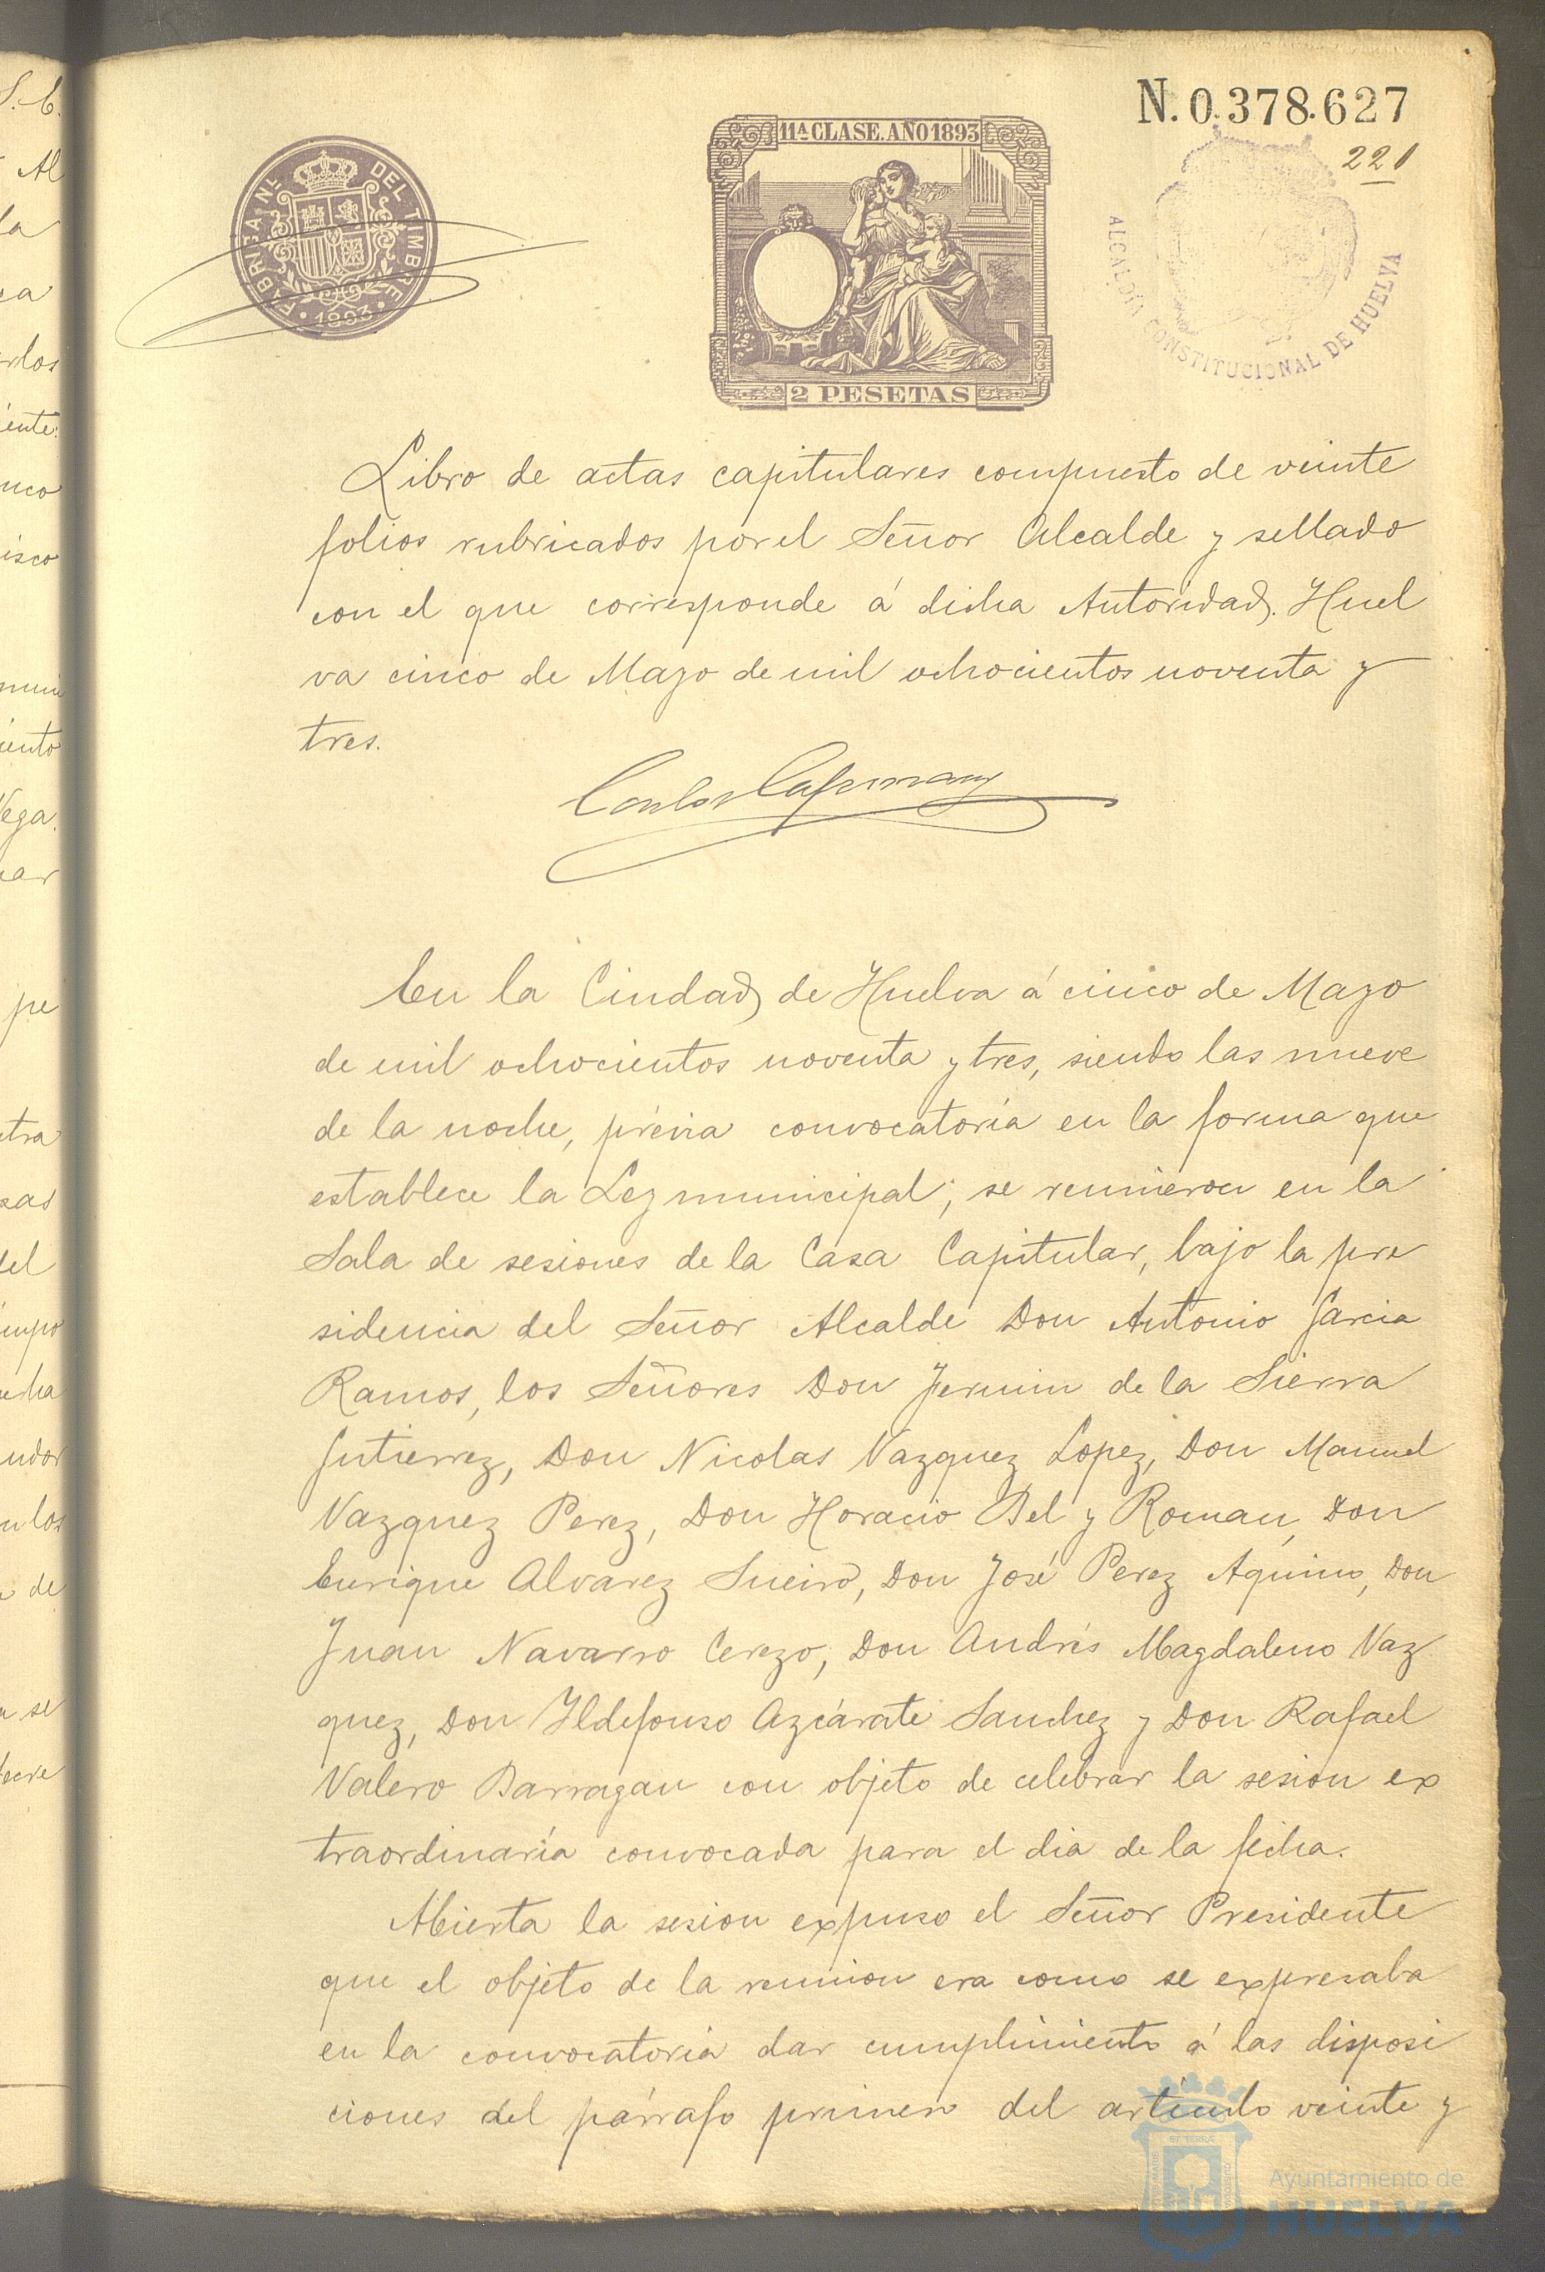 N. 0.378.627
221
FÁBRICA NL. DEL TIMBRE
1893
11ª CLASE. AÑO 1893
2 PESETAS
ALCALDÍA CONSTITUCIONAL DE HUELVA
Libro de actas capitulares compuesto de veinte
folios rubricados por el Señor Alcalde y sellado
con el que corresponde á dicha Autoridad. Huel
va cinco de Mayo de mil ochocientos noventa y
tres.
Carlos
En la Ciudad de Huelva á cinco de Mayo
de mil ochocientos noventa y tres, siendo las nueve
de la noche, prévia convocatoria en la forma que
establece la Ley municipal; se reunieron en la
Sala de sesiones de la Casa Capitular, bajo la pre
sidencia del Señor Alcalde Don Antonio Garcia
Ramos, los Señores Don Fermin de la Sierra
Gutierrez, Don Nicolas Vazquez Lopez, Don Manuel
Vazquez Perez, Don Horacio Bel y Roman, Don
Enrique Alvarez Sueiro, Don José Perez Aquino, Don
Juan Navarro Cerezo, Don Andrés Magdaleno Vaz
quez, Don Ildefonso Azcárate Sanchez y Don Rafael
Valero Barragan con objeto de celebrar la sesion ex
traordinaria convocada para el dia de la fecha.
Abierta la sesion expuso el Señor Presidente
que el objeto de la reunion era como se expresaba
en la convocatoria dar cumplimiento á las disposi
ciones del párrafo primero del artículo veinte y
Ayuntamiento de
HUELVA